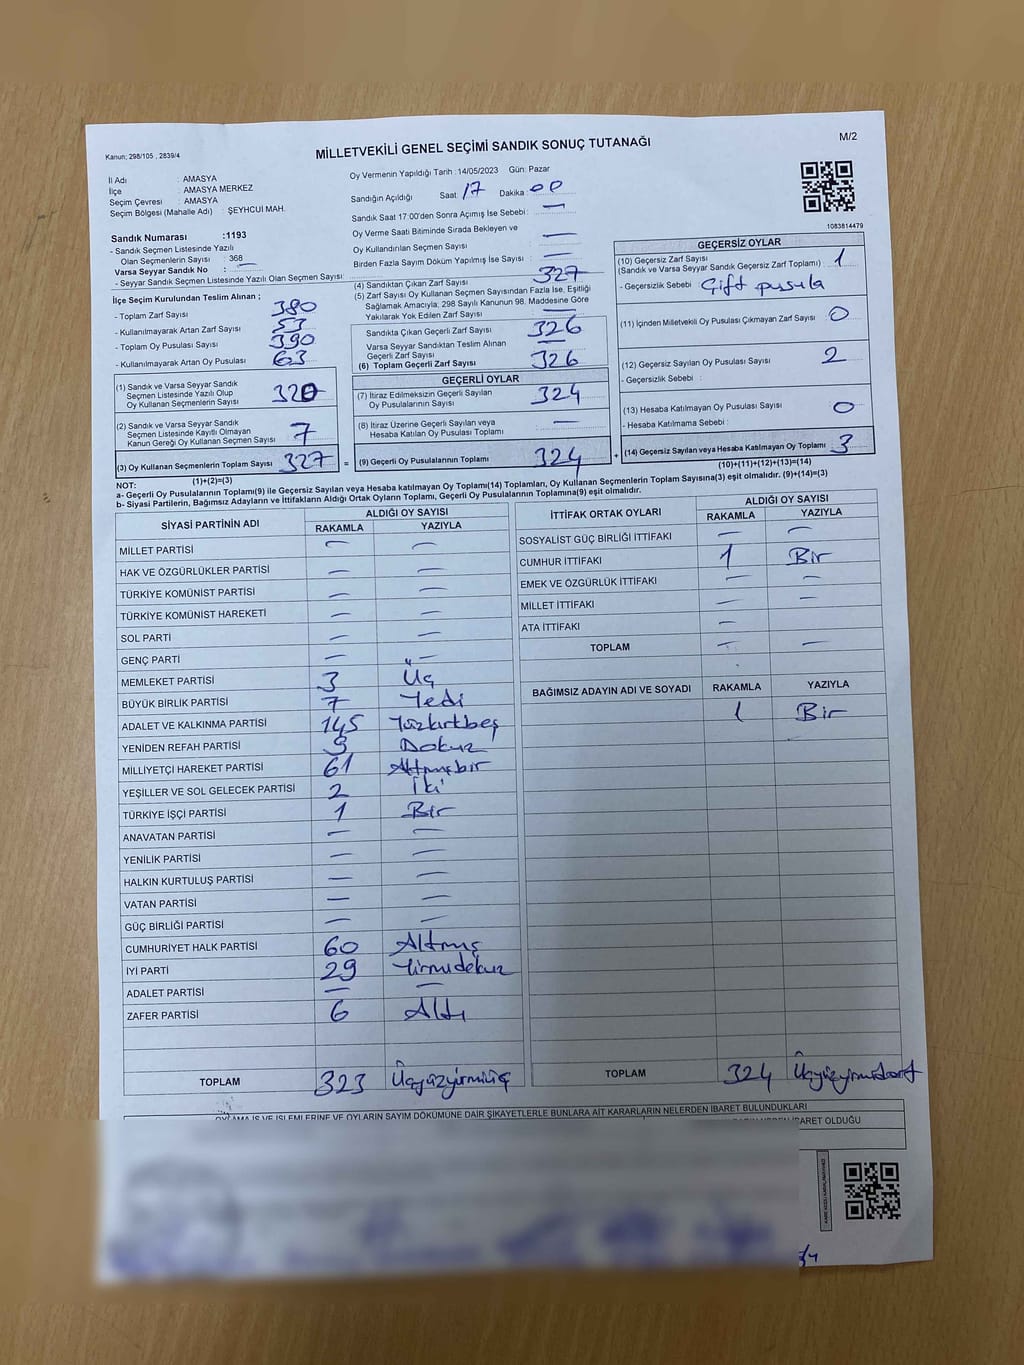 M/2
Kanun; 298/105 , 2839/4
MİLLETVEKİLİ GENEL SEÇİMİ SANDIK SONUÇ TUTANAĞI
İl Adı : AMASYA
İlçe : AMASYA MERKEZ
Seçim Çevresi : AMASYA
Seçim Bölgesi (Mahalle Adı) : ŞEYHCUİ MAH.
Oy Vermenin Yapıldığı Tarih :14/05/2023 Gün: Pazar
Sandığın Açıldığı Saat: 17 Dakika: 00
Sandık Saat 17:00'den Sonra Açımış İse Sebebi : —
Oy Verme Saati Bitiminde Sırada Bekleyen ve
Oy Kullandırılan Seçmen Sayısı : —
Birden Fazla Sayım Döküm Yapılmış İse Sayısı : —
1083814479
Sandık Numarası :1193
- Sandık Seçmen Listesinde Yazılı
Olan Seçmenlerin Sayısı : 368
Varsa Seyyar Sandık No : —
- Seyyar Sandık Seçmen Listesinde Yazılı Olan Seçmen Sayısı:
İlçe Seçim Kurulundan Teslim Alınan ;
- Toplam Zarf Sayısı : 380
- Kullanılmayarak Artan Zarf Sayısı : 53
- Toplam Oy Pusulası Sayısı : 390
- Kullanılmayarak Artan Oy Pusulası : 63
(1) Sandık ve Varsa Seyyar Sandık
Seçmen Listesinde Yazılı Olup
Oy Kullanan Seçmenlerin Sayısı : 320
(2) Sandık ve Varsa Seyyar Sandık
Seçmen Listesinde Kayıtlı Olmayan
Kanun Gereği Oy Kullanan Seçmen Sayısı : 7
(3) Oy Kullanan Seçmenlerin Toplam Sayısı : 327
(1)+(2)=(3)
(4) Sandıktan Çıkan Zarf Sayısı : 327
(5) Zarf Sayısı Oy Kullanan Seçmen Sayısından Fazla İse, Eşitliği
Sağlamak Amacıyla, 298 Sayılı Kanunun 98. Maddesine Göre
Yakılarak Yok Edilen Zarf Sayısı : —
Sandıkta Çıkan Geçerli Zarf Sayısı : 326
Varsa Seyyar Sandıktan Teslim Alınan
Geçerli Zarf Sayısı : —
(6) Toplam Geçerli Zarf Sayısı : 326
GEÇERLİ OYLAR
(7) İtiraz Edilmeksizin Geçerli Sayılan
Oy Pusulalarının Sayısı : 324
(8) İtiraz Üzerine Geçerli Sayılan veya
Hesaba Katılan Oy Pusulası Toplamı : —
= (9) Geçerli Oy Pusulalarının Toplamı : 324
GEÇERSİZ OYLAR
(10) Geçersiz Zarf Sayısı
(Sandık ve Varsa Seyyar Sandık Geçersiz Zarf Toplamı) : 1
- Geçersizlik Sebebi : Çift pusula
(11) İçinden Milletvekili Oy Pusulası Çıkmayan Zarf Sayısı : 0
(12) Geçersiz Sayılan Oy Pusulası Sayısı : 2
- Geçersizlik Sebebi :
(13) Hesaba Katılmayan Oy Pusulası Sayısı : 0
- Hesaba Katılmama Sebebi :
+ (14) Geçersiz Sayılan veya Hesaba Katılmayan Oy Toplamı : 3
(10)+(11)+(12)+(13)=(14)
NOT:
a- Geçerli Oy Pusulalarının Toplamı(9) ile Geçersiz Sayılan veya Hesaba katılmayan Oy Toplamı(14) Toplamları, Oy Kullanan Seçmenlerin Toplam Sayısına(3) eşit olmalıdır. (9)+(14)=(3)
b- Siyasi Partilerin, Bağımsız Adayların ve İttifakların Aldığı Ortak Oyların Toplamı, Geçerli Oy Pusulalarının Toplamına(9) eşit olmalıdır.
SİYASİ PARTİNİN ADI ALDIĞI OY SAYISI
RAKAMLA YAZIYLA
MİLLET PARTİSİ — —
HAK VE ÖZGÜRLÜKLER PARTİSİ — —
TÜRKİYE KOMÜNİST PARTİSİ — —
TÜRKİYE KOMÜNİST HAREKETİ — —
SOL PARTİ — —
GENÇ PARTİ — —
MEMLEKET PARTİSİ 3 Üç
BÜYÜK BİRLİK PARTİSİ 7 Yedi
ADALET VE KALKINMA PARTİSİ 145 Yüzkırkbeş
YENİDEN REFAH PARTİSİ 9 Dokuz
MİLLİYETÇİ HAREKET PARTİSİ 61 Altmışbir
YEŞİLLER VE SOL GELECEK PARTİSİ 2 İki
TÜRKİYE İŞÇİ PARTİSİ 1 Bir
ANAVATAN PARTİSİ — —
YENİLİK PARTİSİ — —
HALKIN KURTULUŞ PARTİSİ — —
VATAN PARTİSİ — —
GÜÇ BİRLİĞİ PARTİSİ — —
CUMHURİYET HALK PARTİSİ 60 Altmış
İYİ PARTİ 29 Yirmidokuz
ADALET PARTİSİ — —
ZAFER PARTİSİ 6 Altı
TOPLAM 323 Üçyüzyirmiüç
İTTİFAK ORTAK OYLARI ALDIĞI OY SAYISI
RAKAMLA YAZIYLA
SOSYALİST GÜÇ BİRLİĞİ İTTİFAKI — —
CUMHUR İTTİFAKI 1 Bir
EMEK VE ÖZGÜRLÜK İTTİFAKI — —
MİLLET İTTİFAKI — —
ATA İTTİFAKI —
TOPLAM — —
BAĞIMSIZ ADAYIN ADI VE SOYADI RAKAMLA YAZIYLA
1 Bir
TOPLAM 324 Üçyüzyirmidört
OYLAMA İŞ VE İŞLEMLERİNE VE OYLARIN SAYIM DÖKÜMÜNE DAİR ŞİKAYETLERLE BUNLARA AİT KARARLARIN NELERDEN İBARET BULUNDUKLARI
İBARET OLDUĞU